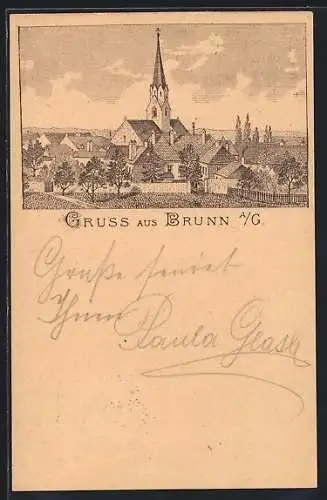 GRUSS AUS BRUNN A/G.
Grüße sendet
Ihnen
Paula Glas